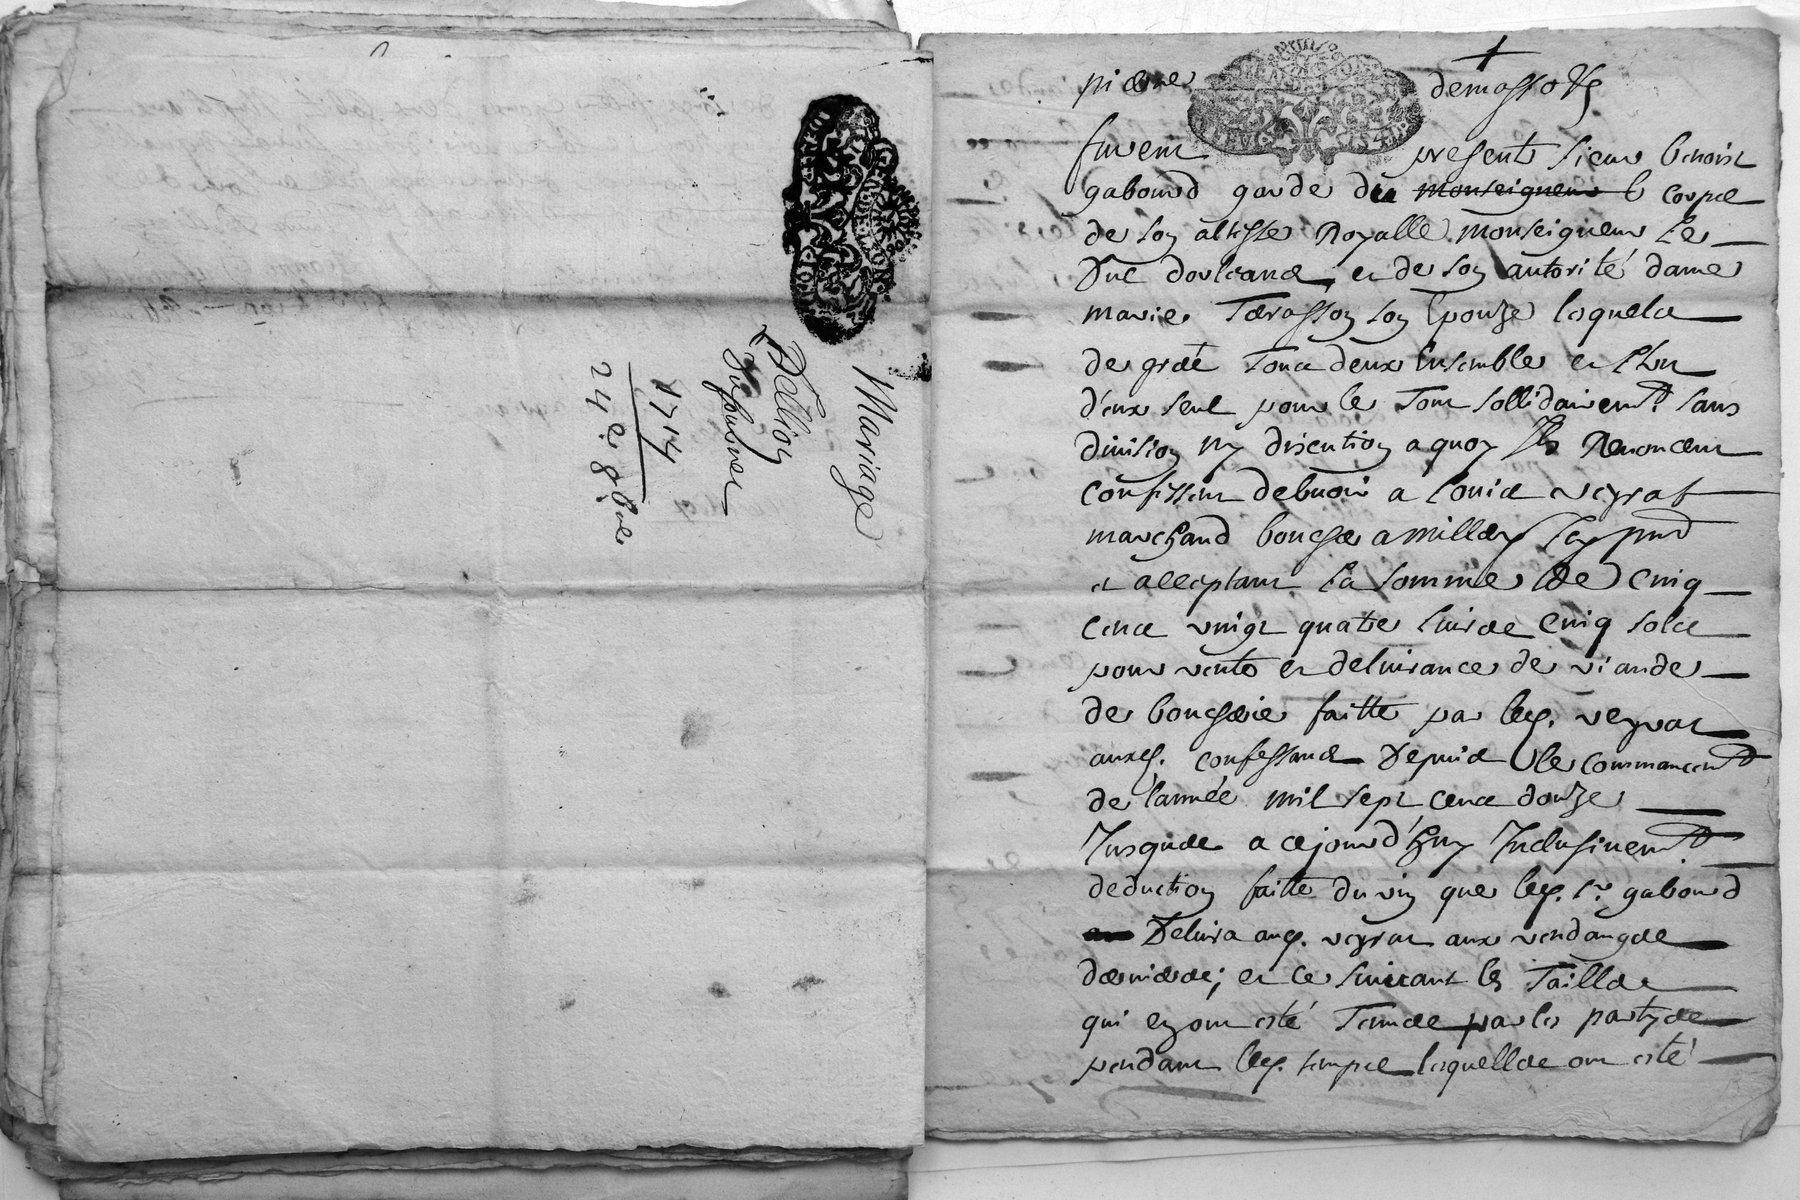 Mariage
Bellion
Dufournel
1714
24.e 8bre
pierre demassotz
furent presents sieur benoist
gabourd garde du monseigneur le corps
de son altesse Royalle monseigneur le
Duc dorleans, et de son autorité dame
marie Terrasson son Epouze lesquels
de gret tous deux Ensemble et l'Un
d'eux seul pour le Tout sollidairemt. sans
division ny discution a quoy Ils Renoncent
confessent debvoir a Louis veyrat
marchand boucher a millery Icy pnt
et acceptant la somme de Cinq
cens vingt quatre livres Cinq sols
pour vente et delivrance de viande
de boucherie faitte par led. veyrat
auxd. confessans Depuis le commancemt
de l'année mil sept cens douze
Jusques a cejourd'huy Inclusivemt.
deduction faitte du vin que led. sr. gabourd
Delivra aud. veyrat aux vendanges
dernieres; et ce suivant les Tailles
qui en ont esté Tenues par les partyes
pendant led. temps lesquelles ont esté